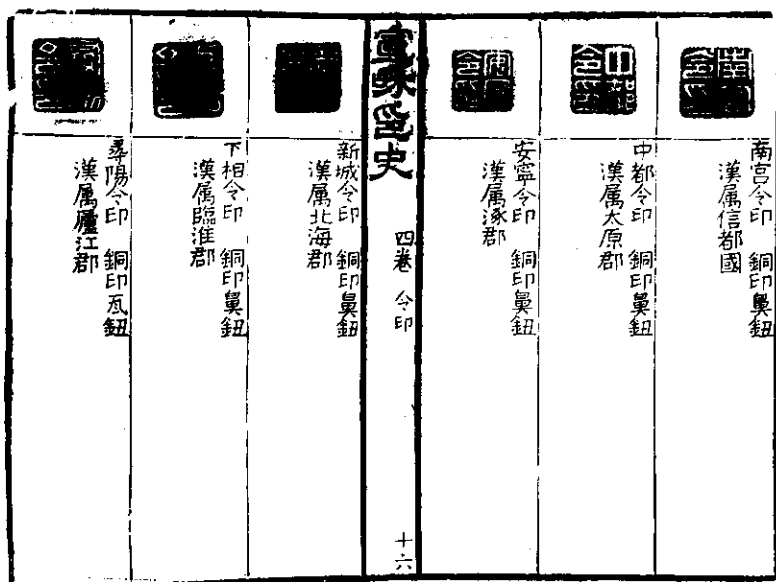 南宮
令印
南宮令印　銅印鼻鈕
漢属信都國
中都
令印
中都令印　銅印鼻鈕
漢属太原郡
安寧令印　銅印鼻鈕
漢属涿郡
宣和印史　四卷　令印　十六
新城令印　銅印鼻鈕
漢属北海郡
下相令印　銅印鼻鈕
漢属臨淮郡
尋陽令印　銅印瓦鈕
漢属廬江郡